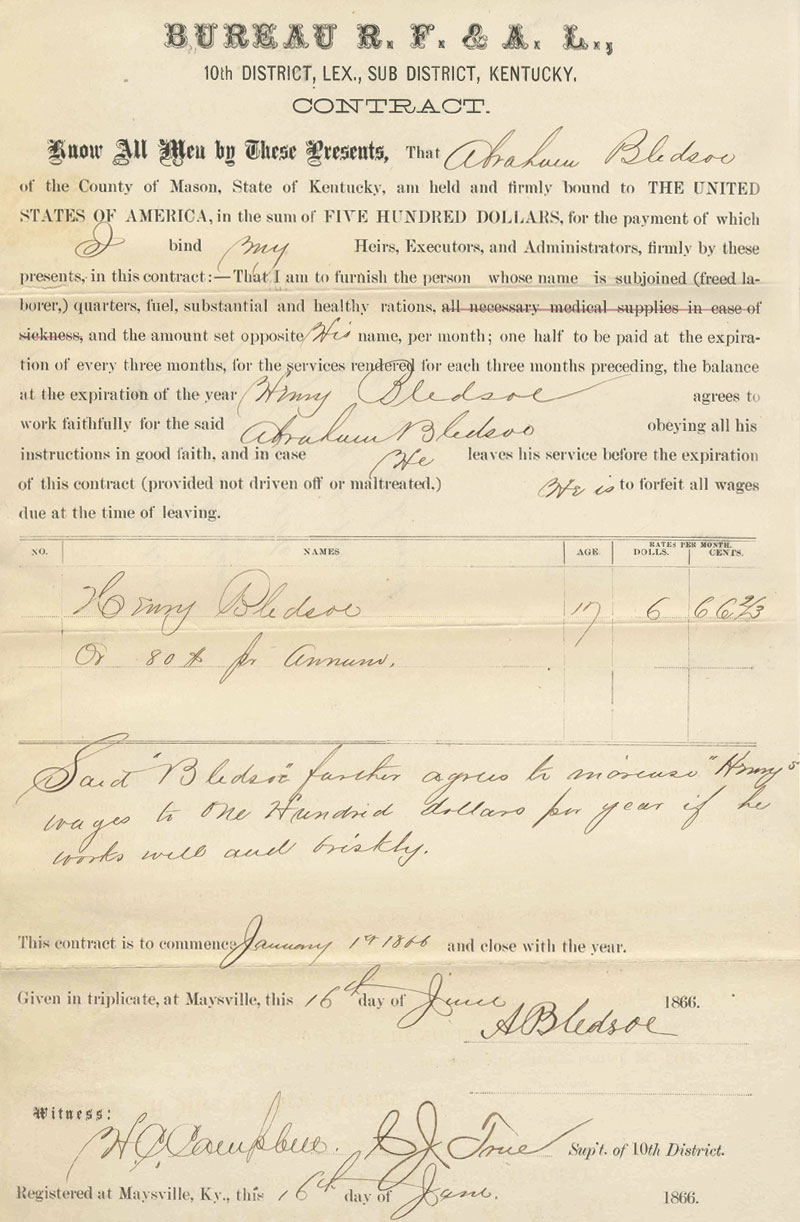 BUREAU R. F. & A. L.,
10th DISTRICT, LEX., SUB DISTRICT, KENTUCKY.
CONTRACT.
Know All Men by These Presents, That Abraham Bledsoe
of the County of Mason, State of Kentucky, am held and firmly bound to THE UNITED
STATES OF AMERICA, in the sum of FIVE HUNDRED DOLLARS, for the payment of which
I bind my Heirs, Executors, and Administrators, firmly by these
presents, in this contract:—That I am to furnish the person whose name is subjoined (freed la-
borer,) quarters, fuel, substantial and healthy rations, all necessary medical supplies in case of
sickness, and the amount set opposite His name, per month; one half to be paid at the expira-
tion of every three months, for the services rendered for each three months preceding, the balance
at the expiration of the year Henry Bledsoe agrees to
work faithfully for the said Abraham Bledsoe obeying all his
instructions in good faith, and in case He leaves his service before the expiration
of this contract (provided not driven off or maltreated.) He is to forfeit all wages
due at the time of leaving.
NO. NAMES AGE. RATES PER MONTH.
DOLLS. CENTS.
Henry Bledsoe 17 6 66 2/3
Or 80 $ pr Annum.
Said "Bledsoe" further agrees to increase "Henry's
wages to One Hundred dollars per year if he
works well and briskly.
This contract is to commence January 1st 1866 and close with the year.
Given in triplicate, at Maysville, this 16th day of June 1866.
A Bledsoe
Witness:
H C Campbell. C J True Sup't. of 10th District.
Registered at Maysville, Ky., this 16th day of June. 1866.